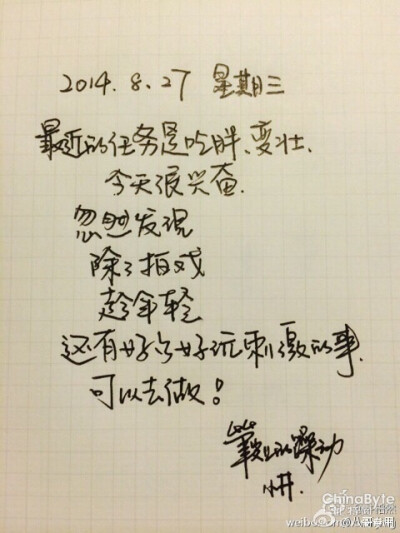 2014.8.27 星期三
最近的任务是吃胖、变壮、
今天很兴奋.
忽然发现
除了拍戏
趁年轻
还有好多好玩刺激的事.
可以去做!
的躁动
小井.
ChinaByte
weibo.com
@八哥自用